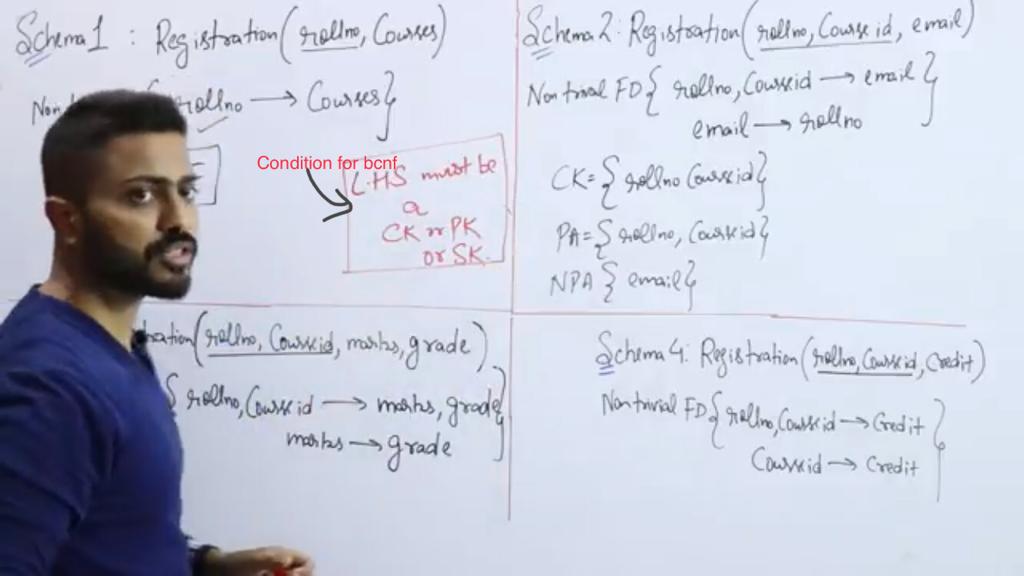 Schema 1 : Registration (rollno, Courses)
rollno → Courses}
Condition for bcnf
L.H.S must be
a
CK or PK
or SK.
Schema 2: Registration (rollno, Courseid, email)
Non trivial FD { rollno, Courseid → email }
email → rollno
CK = { rollno Courseid }
PA = { rollno, Courseid }
NPA { email }
tration (rollno, Courseid, marks, grade)
{ rollno, Courseid → marks, grade }
marks → grade
Schema 4: Registration (rollno, Courseid, Credit)
Non trivial FD { rollno, Courseid → Credit }
Courseid → Credit